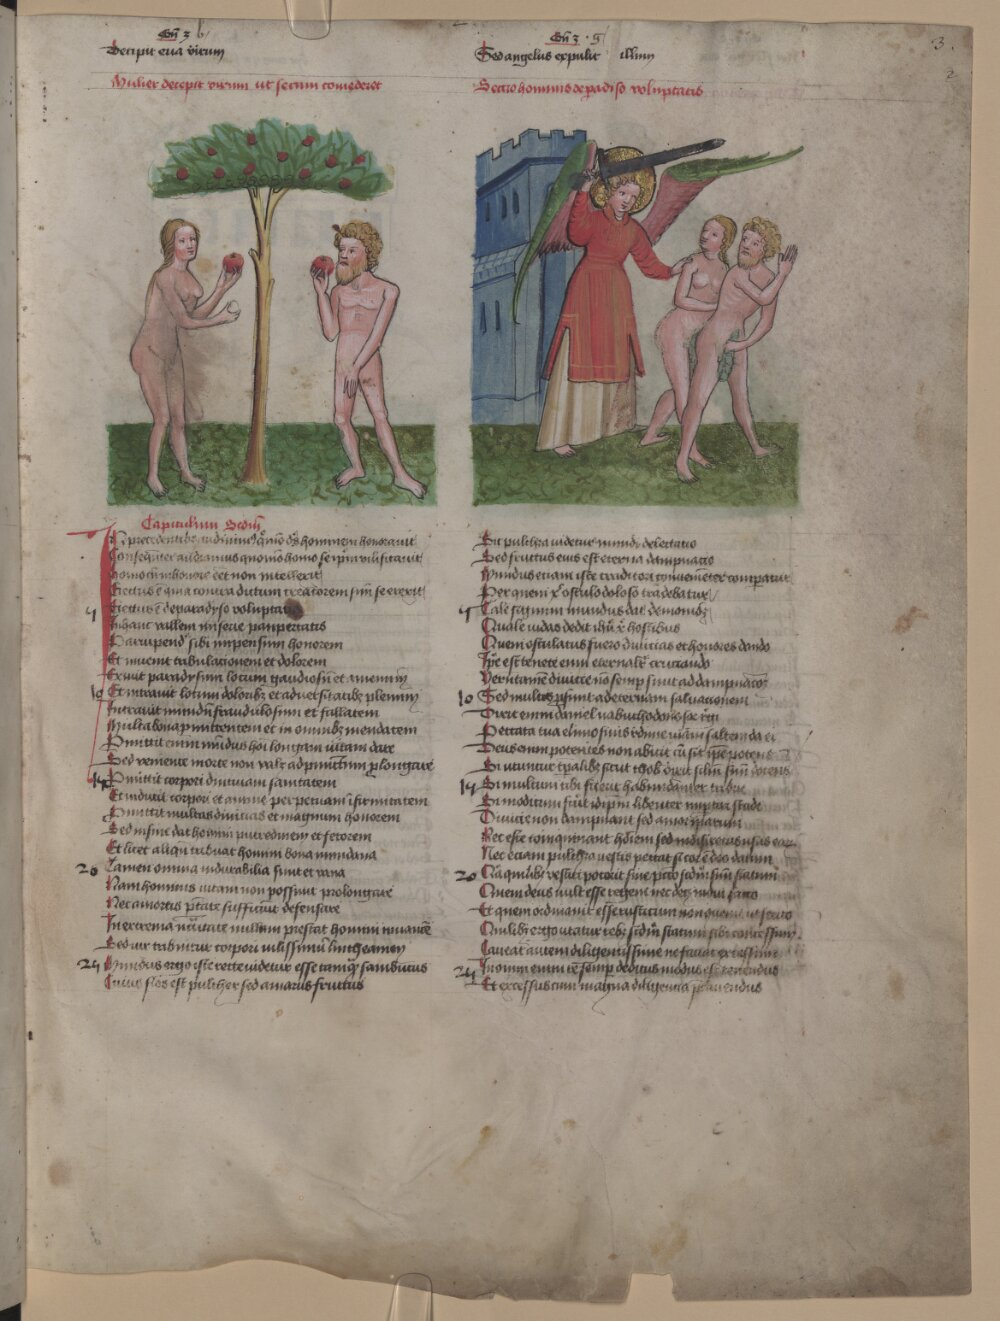 Gn̄ 3
Decipit eua virum
Mulier decepit virum ut secum comederet
Capitulum Scdm̄
In precedentibus audiuimus quomō dn̄s hominem honorauit
Consequenter audiamus quomō homo se ipm̄ vilificauit
Homo cum in honore eēt non intellexit
Eiectus ē quia contra dictum creatorem suū se erexit
5 Eiectus ē de paradyso voluptatis
In hanc vallem miserie paupertatis
Paruipendit sibi impensum honorem
Et inuenit tribulacionem et dolorem
Exiuit paradysum locum gaudiosum et amenum
10 Et intrauit locum doloribus et aduersitatibus plenum
Intrauit mundum fraudulosum et fallacem
Multa bona promittentem et in omnibus mendacem
Promittit enim mundus homini longam uitam dare
Sed veniente morte non valet ad punctum prolongare
15 Promittit corpori diuturnam sanitatem
Et inducit corpori et anime perpetuam infirmitatem
Promittit multas diuicias et magnum honorem
Sed in fine dat homini putredinem et fetorem
Et licet aliqua tribuat homini bona mundana
20 Tamen omnia indurabilia sunt et vana
Nam hominis uitam non possunt prolongare
Nec a mortis ptāte sufficiunt defensare
In extrema necessitate nullum prestat homini iuuamē
Sed vix tribuitur corpori vilissimū lintheamen
25 Mundus ergo iste recte videtur esse tamquam sambucus
Cuius flos est pulcher sed amarus fructus
Gn̄ 3
Sed angelus expulit illum
Eiectio hominis de paradiso voluptatis
Sic pulchra videtur mundi delectatio
Sed fructus eius est eterna dampnacio
Mundus etiam iste traditori conuenienter comparatur
Per quem xps osculo doloso tradebatur
5 Tale signum mundus dat demonibus
Quale iudas dedit ihū xp̄i hostibus
Quem osculatus fuero diuicias et honores dando
Ipse est tenete eum eternaliter cruciando
Verūtamen diuites non semper sunt ad dampnacōem
10 Sed multis prosunt ad eternam saluacionem
Dixit enim daniel nabuchodonosor regi
Peccata tua elimosinis redime
Deus enim potentes non abicit cum sit ipse potens
Si utuntur temporalibus sicut thobias dixit filium suum docens
15 Si multum tibi fuerit habundanter tribue
Si modicum fuerit id ipsum libenter impertiri stude
Diuicie non dampnant sed amor
Nec esce coinquinant hominem sed
Nec etiam pulchra vestis peccat si
20 Nam quilibet vestiri poterit sine peccato secundum suum statum
Quem deus uult esse regem nec decet indui
Et quem ordinauit esse rusticum non
Quilibet ergo utatur rebus secundum statum sibi concessum
Caueat autem diligentissime ne faciat excessum
25 In omni enim re semper debitus modus est tenendus
Et excessus cum magna diligencia precauendus